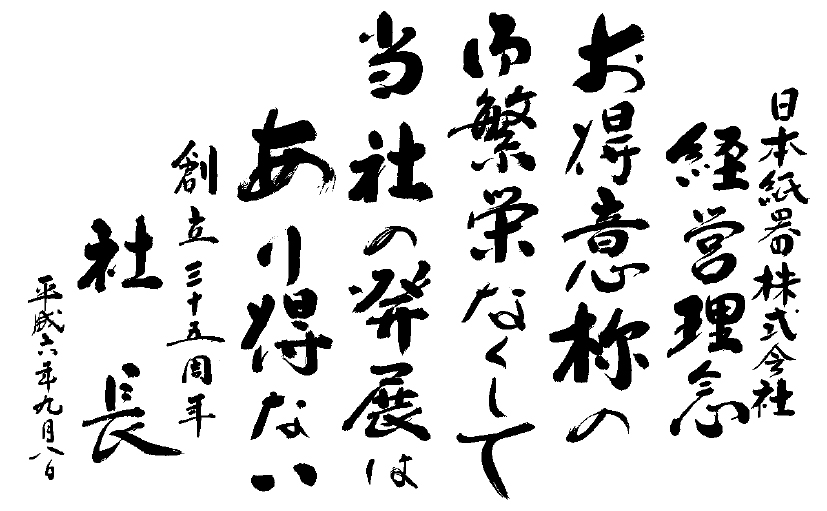 日本紙器株式会社
経営理念
お得意様の
御繁栄なくして
当社の発展は
あり得ない
創立三十五周年
社長
平成六年九月八日